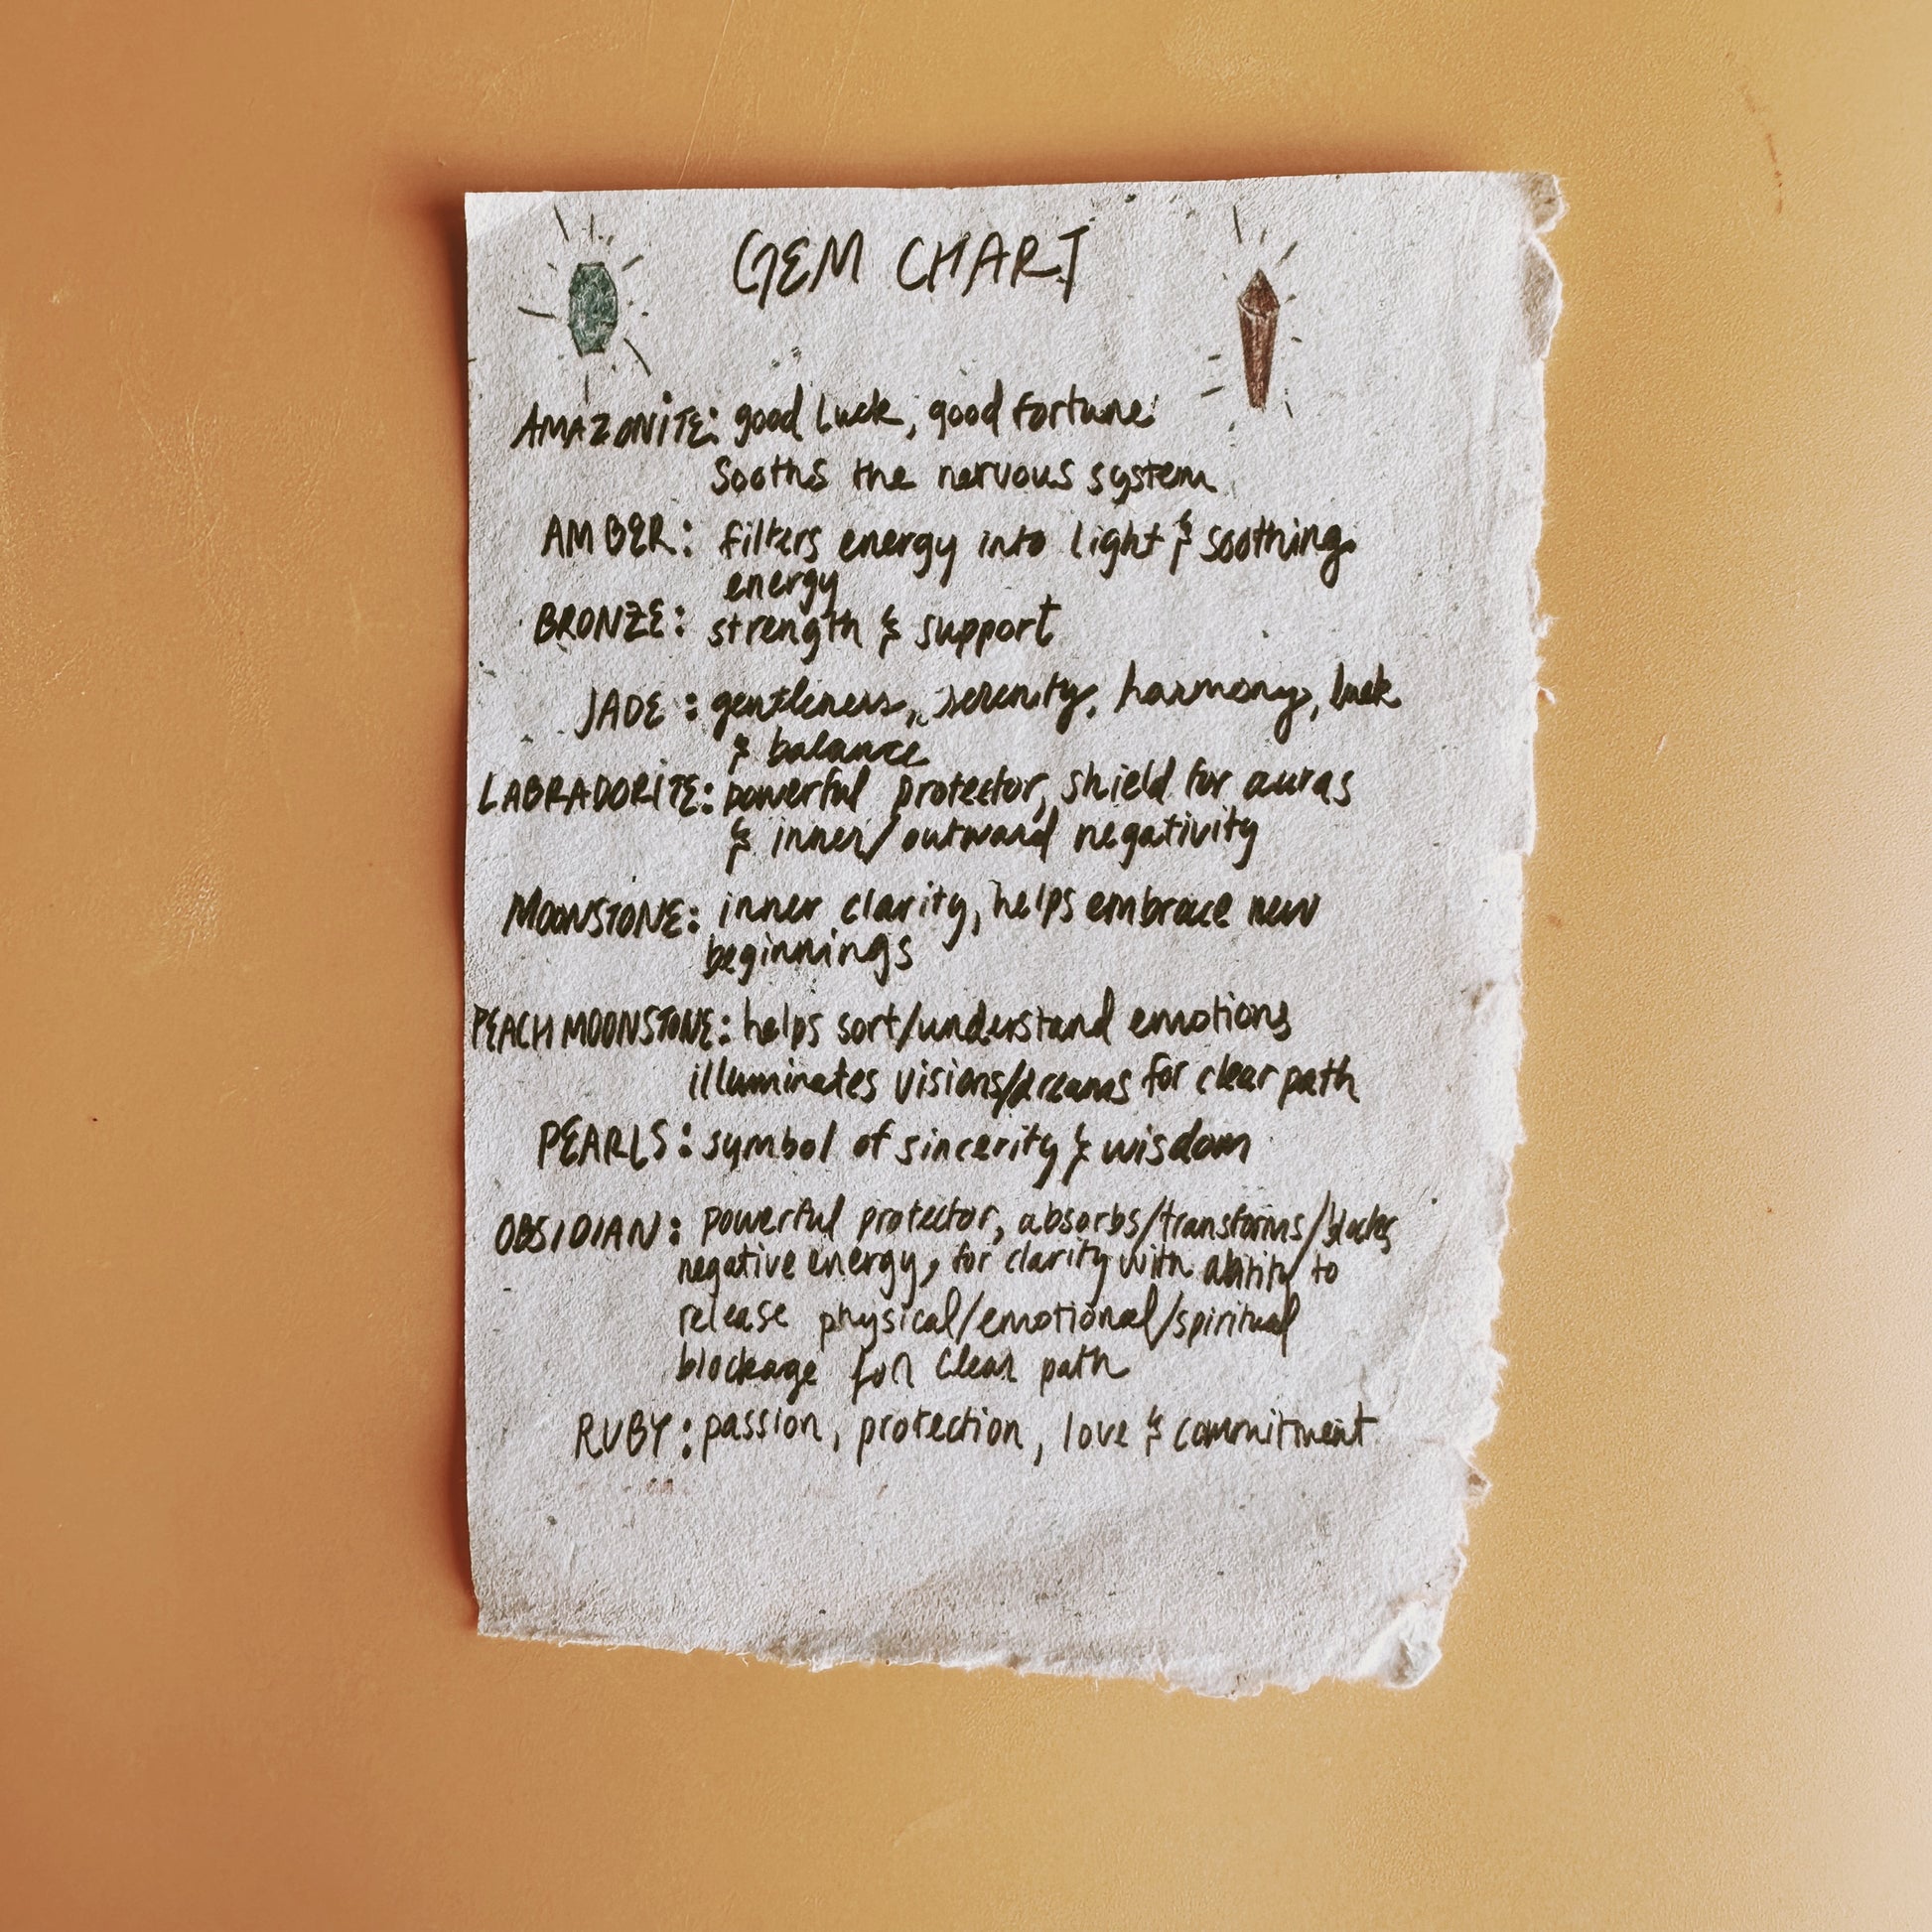 GEM CHART
AMAZONITE: good luck, good fortune
Sooths the nervous system
AMBER: filters energy into light & soothing
energy
BRONZE: strength & support
JADE: gentleness, serenity, harmony, luck
& balance
LABRADORITE: powerful protector, shield for auras
& inner/outward negativity
MOONSTONE: inner clarity, helps embrace new
beginnings
PEACH MOONSTONE: helps sort/understand emotions
illuminates visions/dreams for clear path
PEARLS: symbol of sincerity & wisdom
OBSIDIAN: powerful protector, absorbs/transforms/blocks
negative energy, for clarity with ability to
release physical/emotional/spiritual
blockage for clear path
RUBY: passion, protection, love & commitment